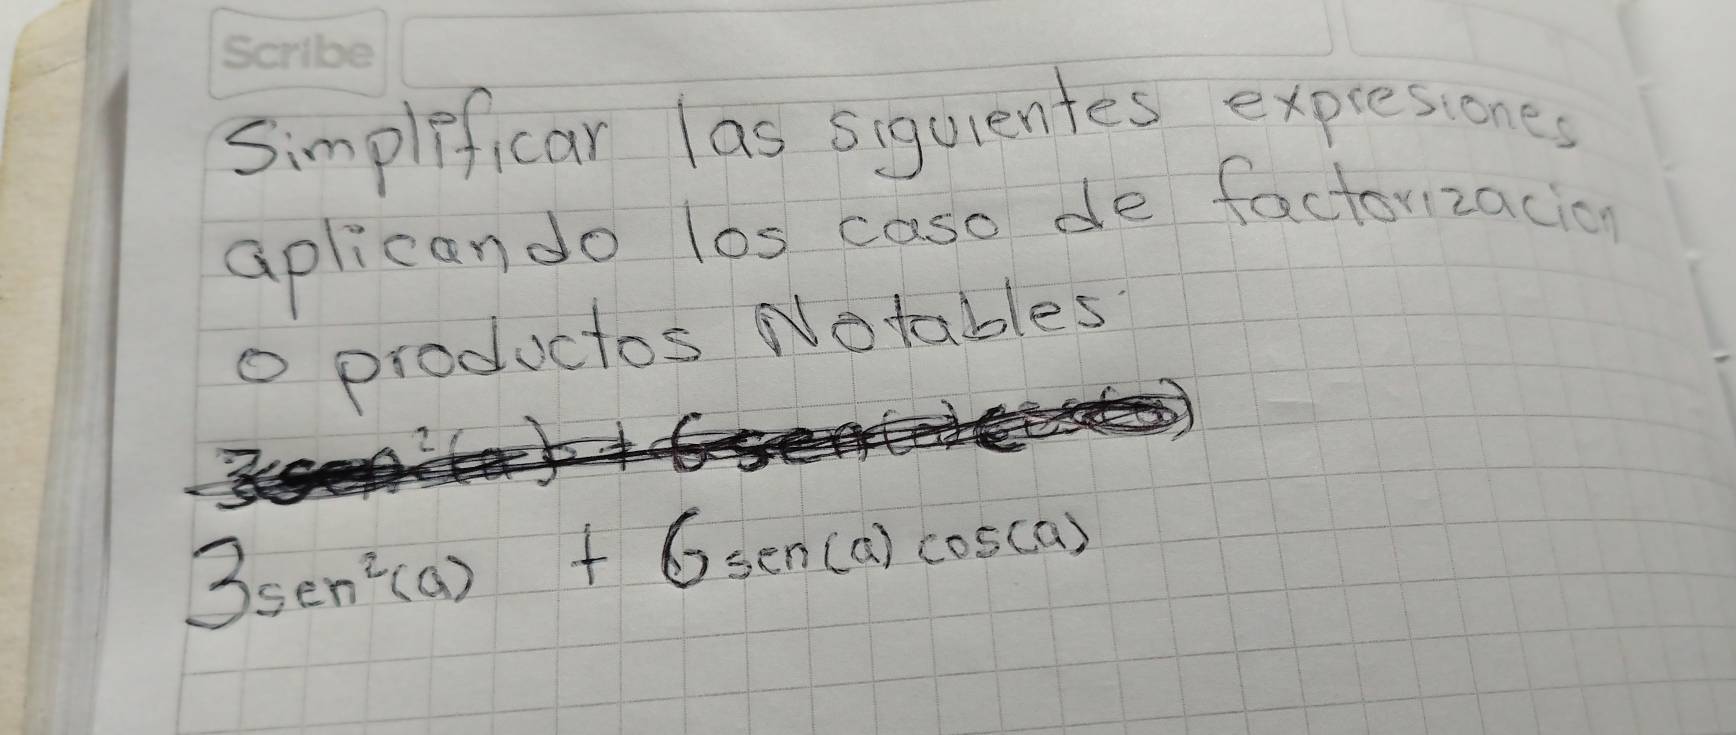 Scribe
Simplificar las siguientes expresiones
aplicando los caso de factorizacion
o productos Notables
3sen²(a) + 6sen(a) cos(a)